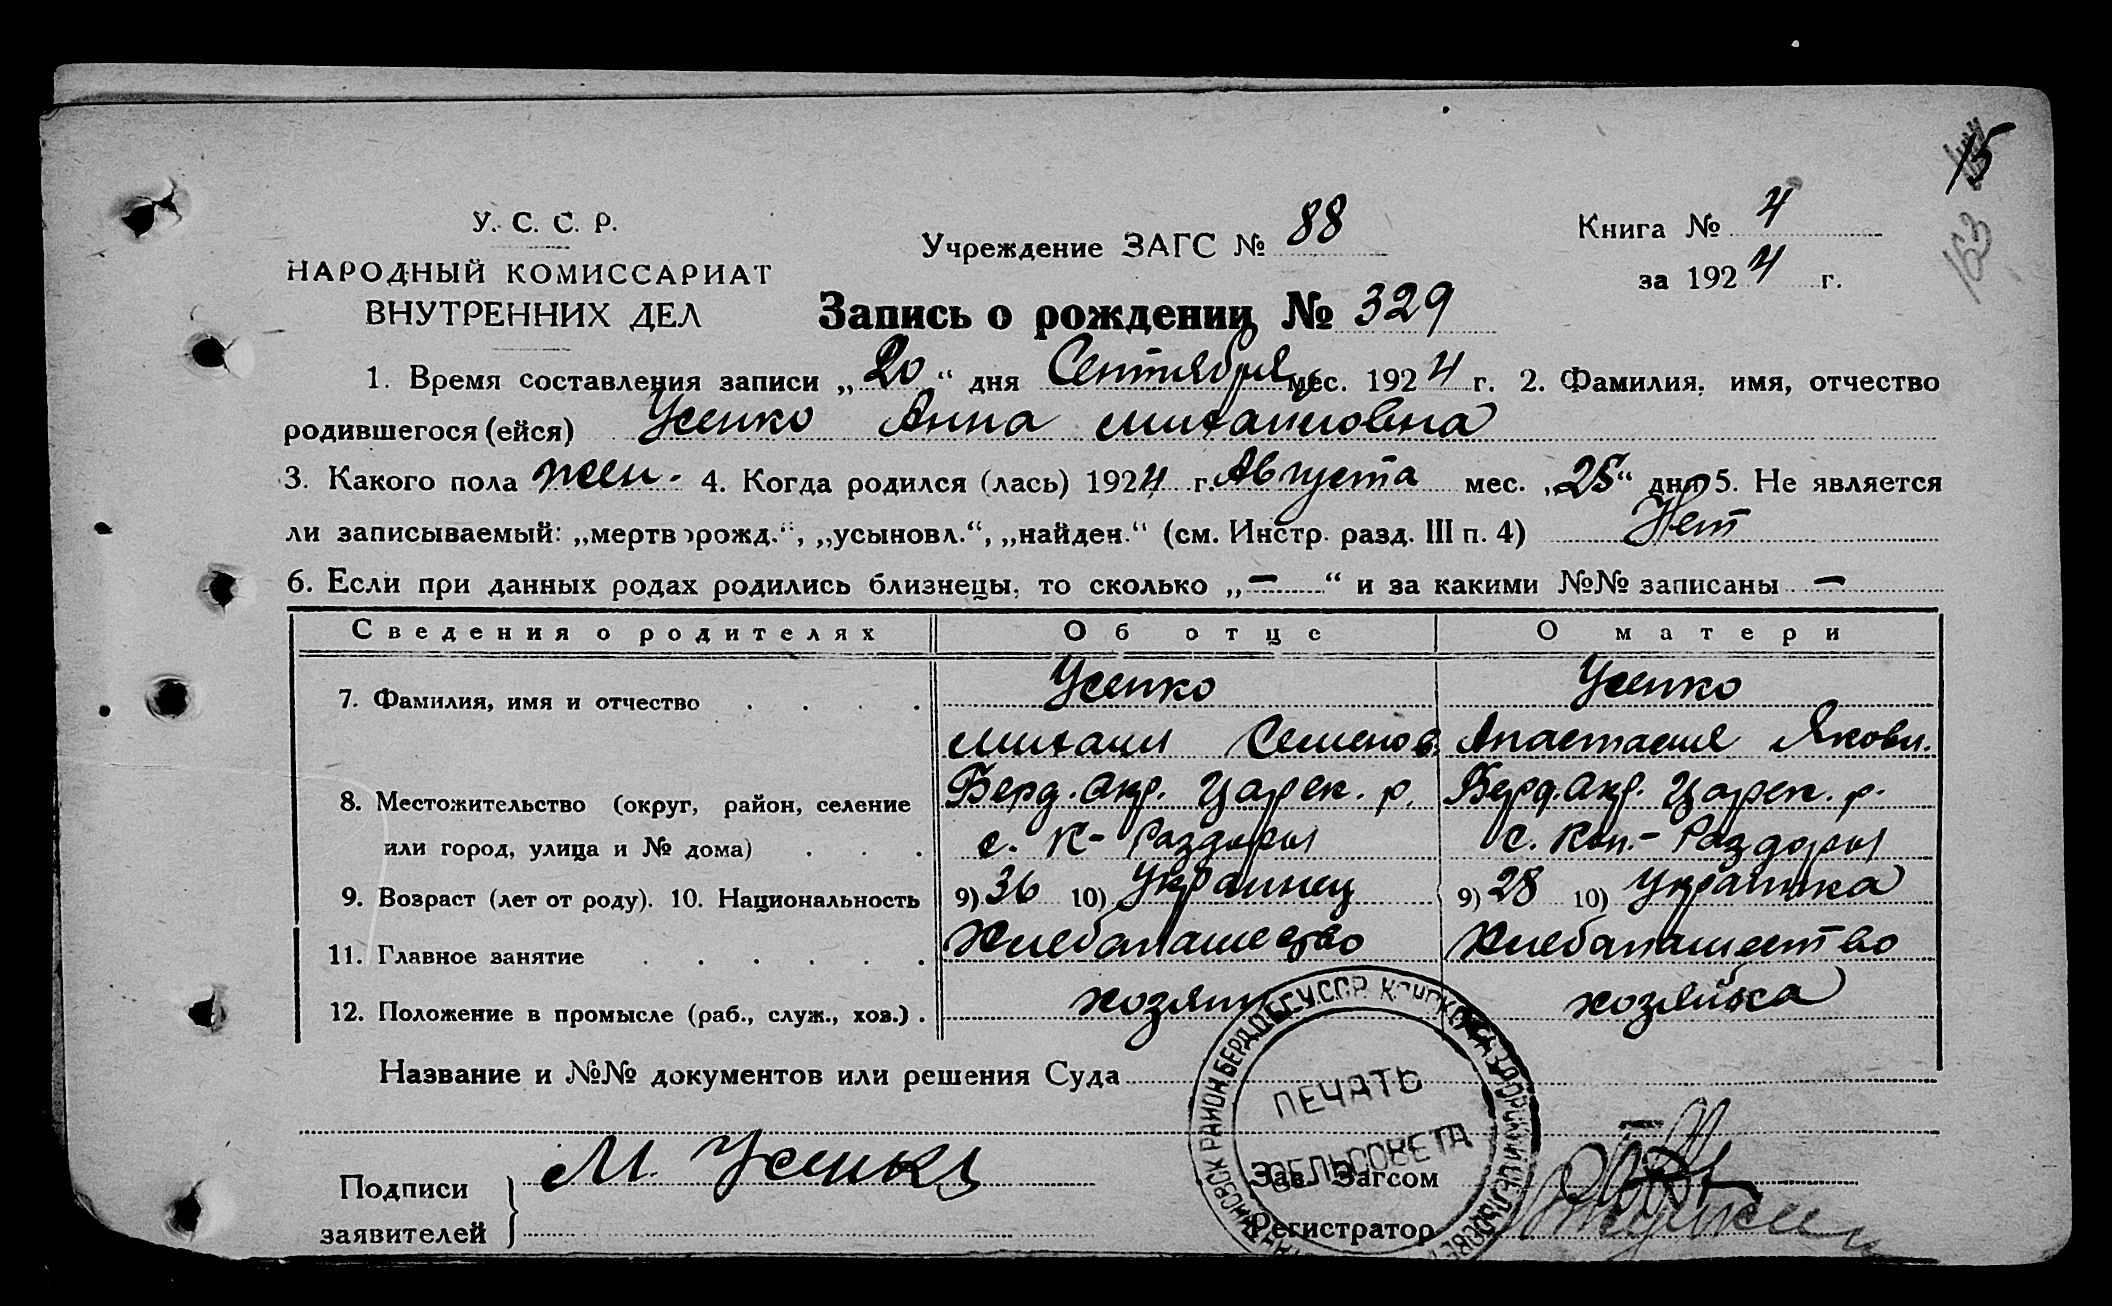 15
163
У. С. С. Р.
НАРОДНЫЙ КОМИССАРИАТ
ВНУТРЕННИХ ДЕЛ
Учреждение ЗАГС № 88
Книга № 4
за 1924 г.
Запись о рождении № 329
1. Время составления записи „20“ дня Сентября мес. 1924 г. 2. Фамилия, имя, отчество
родившегося (ейся) Усенко Анна Михайловна
3. Какого пола жен. 4. Когда родился (лась) 1924 г. Августа мес. „25“ дня 5. Не является
ли записываемый: „мертворожд.“, „усыновл.“, „найден.“ (см. Инстр. разд. III п. 4) Нет
6. Если при данных родах родились близнецы, то сколько „—“ и за какими №№ записаны —
Сведения о родителях Об отце О матери
7. Фамилия, имя и отчество . . . . Усенко Усенко
Михаил Семенов. Анастасия Яковл.
8. Местожительство (округ, район, селение Берд. Окр. Царек. р. Берд. Окр. Царек. р.
или город, улица и № дома) . . . с. К-Раздоры с. Кон.-Раздоры
9. Возраст (лет от роду). 10. Национальность 9) 36 10) Украинец 9) 28 10) Украинка
11. Главное занятие . . . . . . Хлебапашество Хлебапашество
12. Положение в промысле (раб., служ., хоз.) . хозяин хозяйка
Название и №№ документов или решения Суда
—
Подписи
заявителей
М. Усенко
Зав. Загсом
Регистратор
ПЕЧАТЬ
СЕЛЬСОВЕТА
РАЙОН. БЕРД. У.С.С.Р.